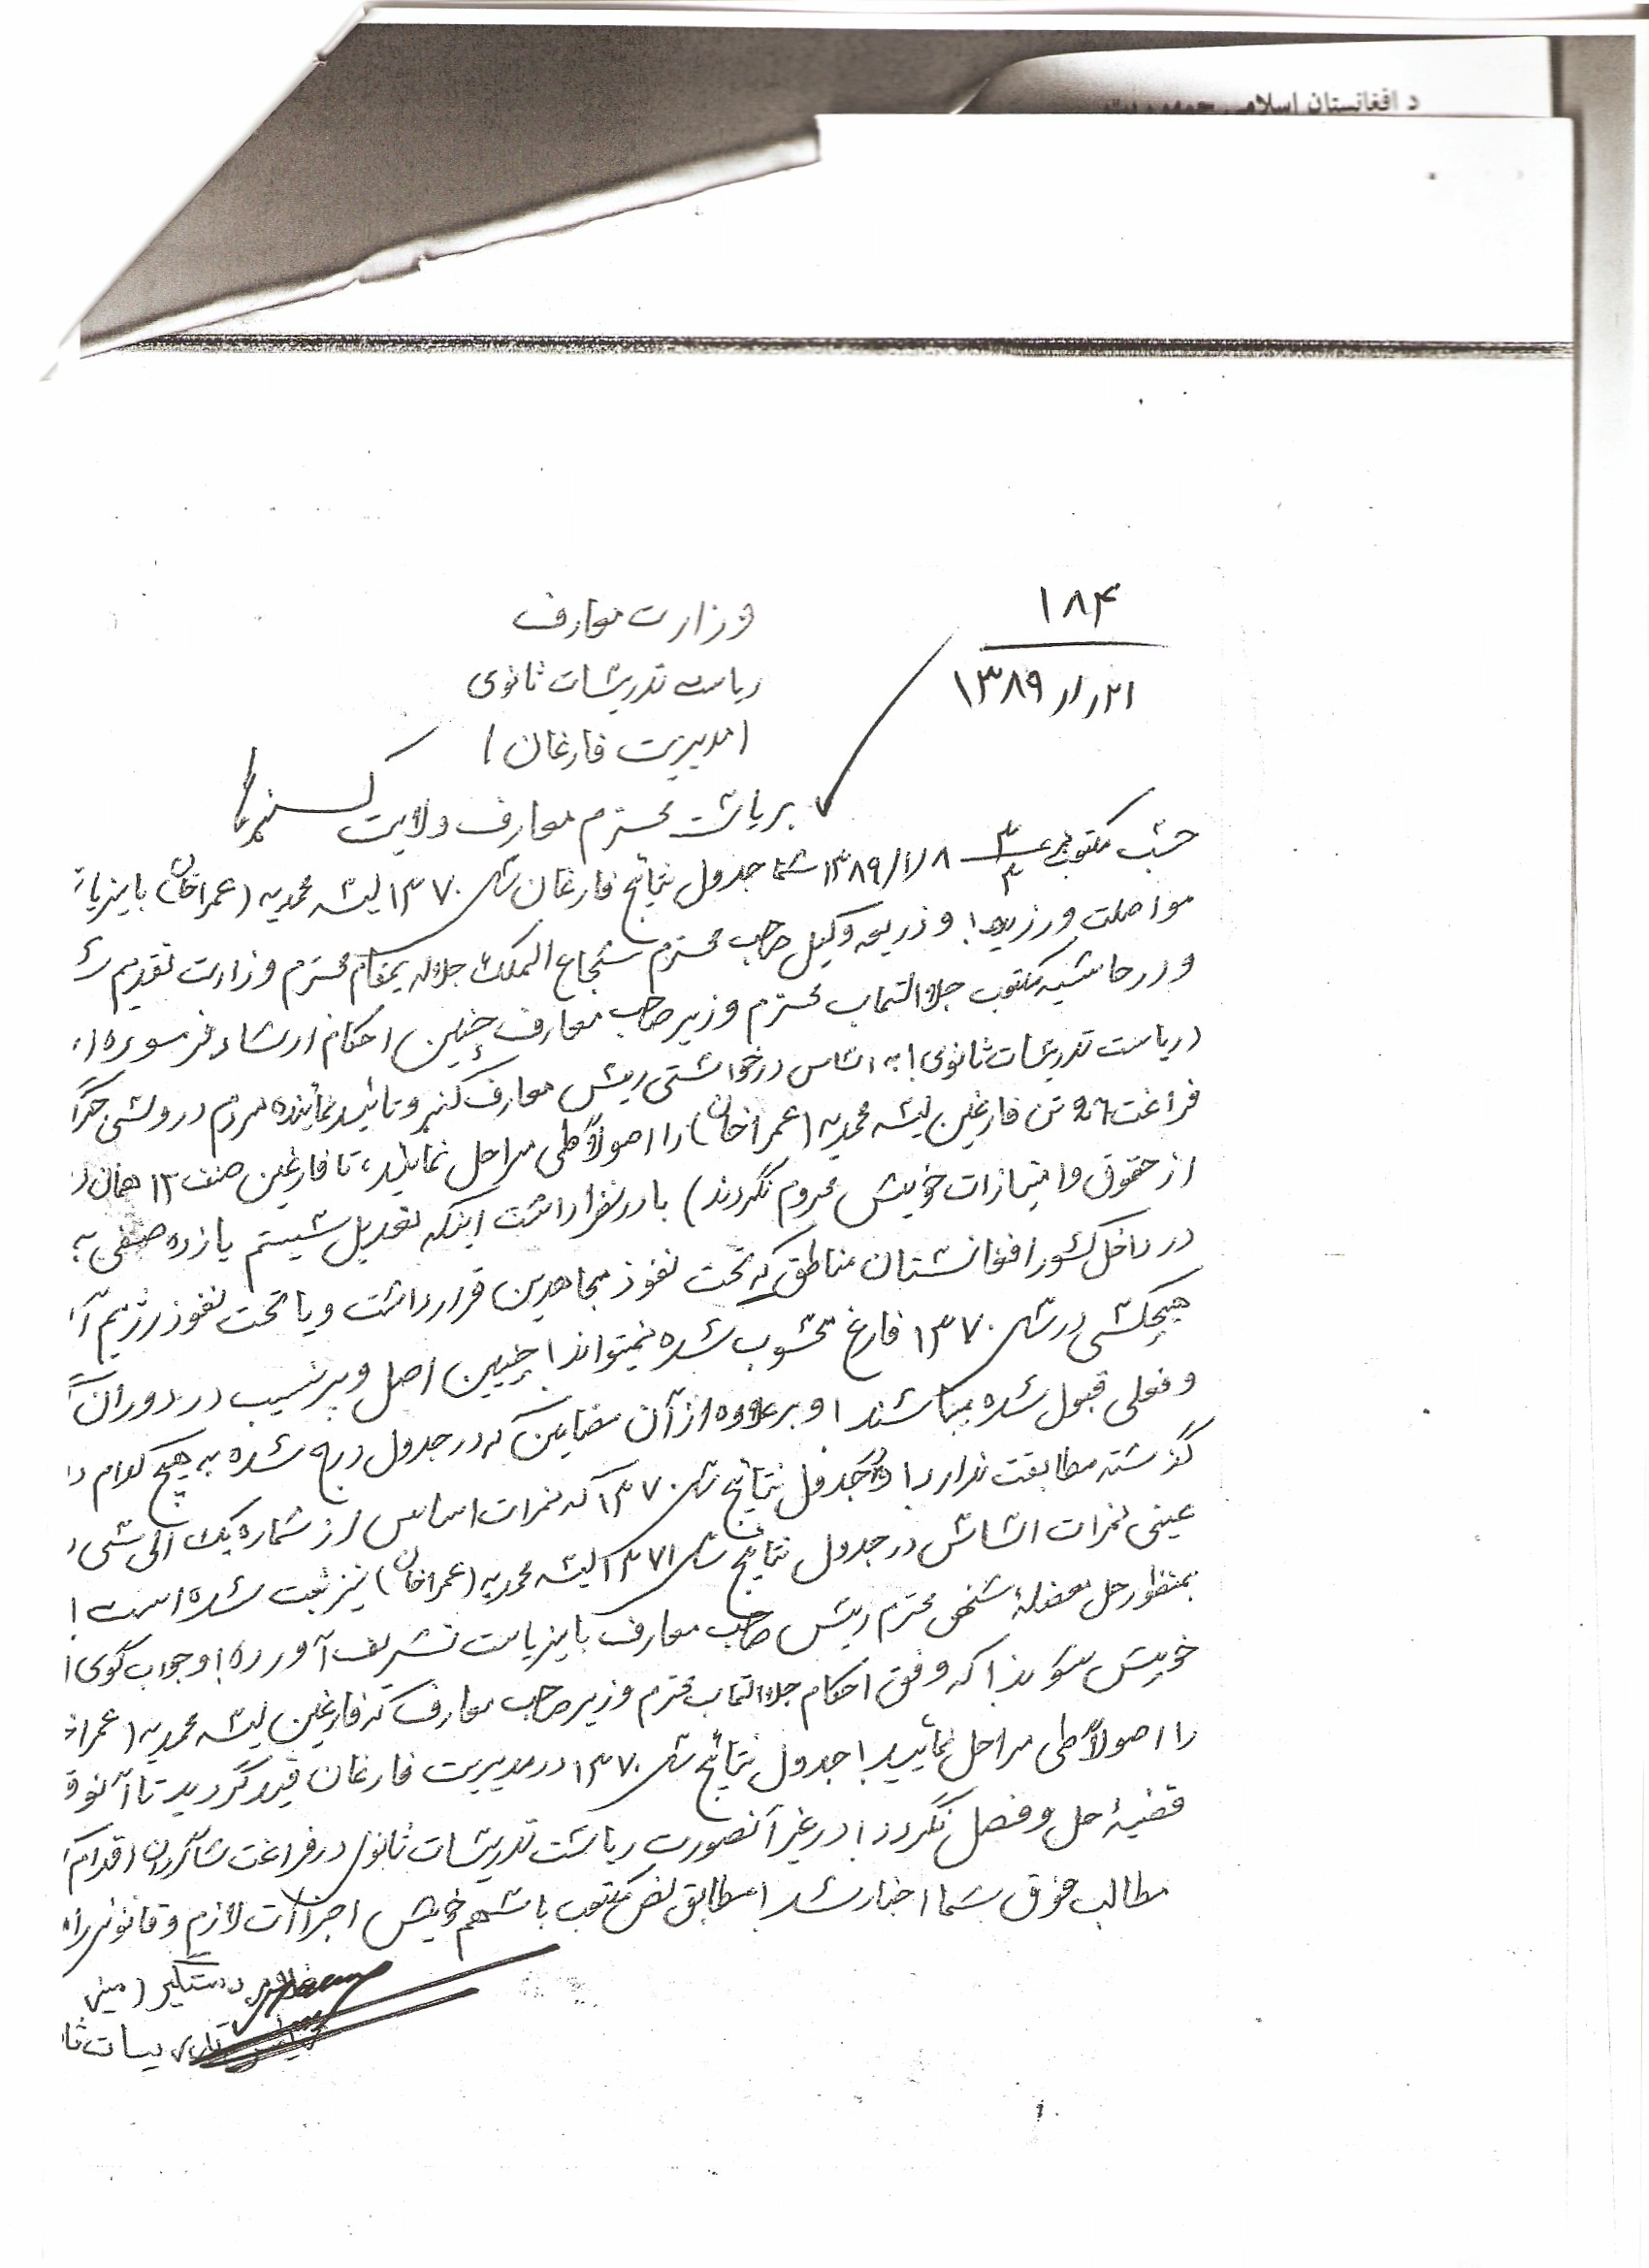 د افغانستان اسلامی جمهوریت
۱۸۴
۱۳۸۹
وزارت معارف
ریاست تدریسات ثانوی
(مدیریت فارغان)
بریاست محترم معارف ولایت کنرها
حسب مکتوب ۱۳۸۹/۱/۸ شما جدول نتایج فارغان سال ۱۳۷۰ لیسه محمدیه (عمراخان) باینریا
مواصلت ورزیده! و ذریعه وکیل صاحب محترم شجاع الملک جلاله بمقام محترم وزارت تقدیم
و در حاشیه مکتوب جلالتماب محترم وزیر صاحب معارف چنین احکام ارشاد فرموده ا
(ریاست تدریسات ثانوی! به اساس درخواستی رییس معارف کنر و تائید نماینده مردم در ولسی جرگه
فراغت ۹۶ تن فارغین لیسه محمدیه (عمراخان) را اصولاً طی مراحل نمایند، تا فارغین صنف ۱۲ همان
از حقوق و امتیازات خویش محروم نگردند) با در نظرداشت اینکه تعدیل سیستم یازده صنفی به
در داخل کشور افغانستان مناطق که تحت نفوذ مجاهدین قرار داشت و یا تحت نفوذ رژیم آ
هیچکسی در سال ۱۳۷۰ فارغ محسوب شده نمیتواند! چنین اصل و پرنسیب در دوران
و فعلی قبول شده میباشند! و بر علاوه از آن مضامین که در جدول درج شده به هیچ کدام
گذشته مطابقت ندارد! و جدول نتایج سال ۱۳۷۰ که نمرات اساس از شماره یک الی سی
عینی نمرات اساس در جدول نتایج سال ۱۳۷۱ لیسه محمدیه (عمراخان) نیز ثبت شده است!
بمنظور حل معضلهٔ شخص محترم رییس صاحب معارف باینریاست تشریف آورده! و جواب گوی
خویش شوند! که وفق احکام جلالتماب محترم وزیر صاحب معارف که فارغین لیسه محمدیه (عمرا
را اصولاً طی مراحل نمائید! جدول نتایج سال ۱۳۷۰ در مدیریت فارغان قید گردید تا آنو
قضیهٔ حل و فصل نگردد! در غیر آنصورت ریاست تدریسات ثانوی در فراغت شاگردان اقدام
مطالب فوق بشما اخبار شد! مطابق نص مکتوب با سهم خویش اجراآت لازم و قانونی را
دستگیر
تدریسات ثا